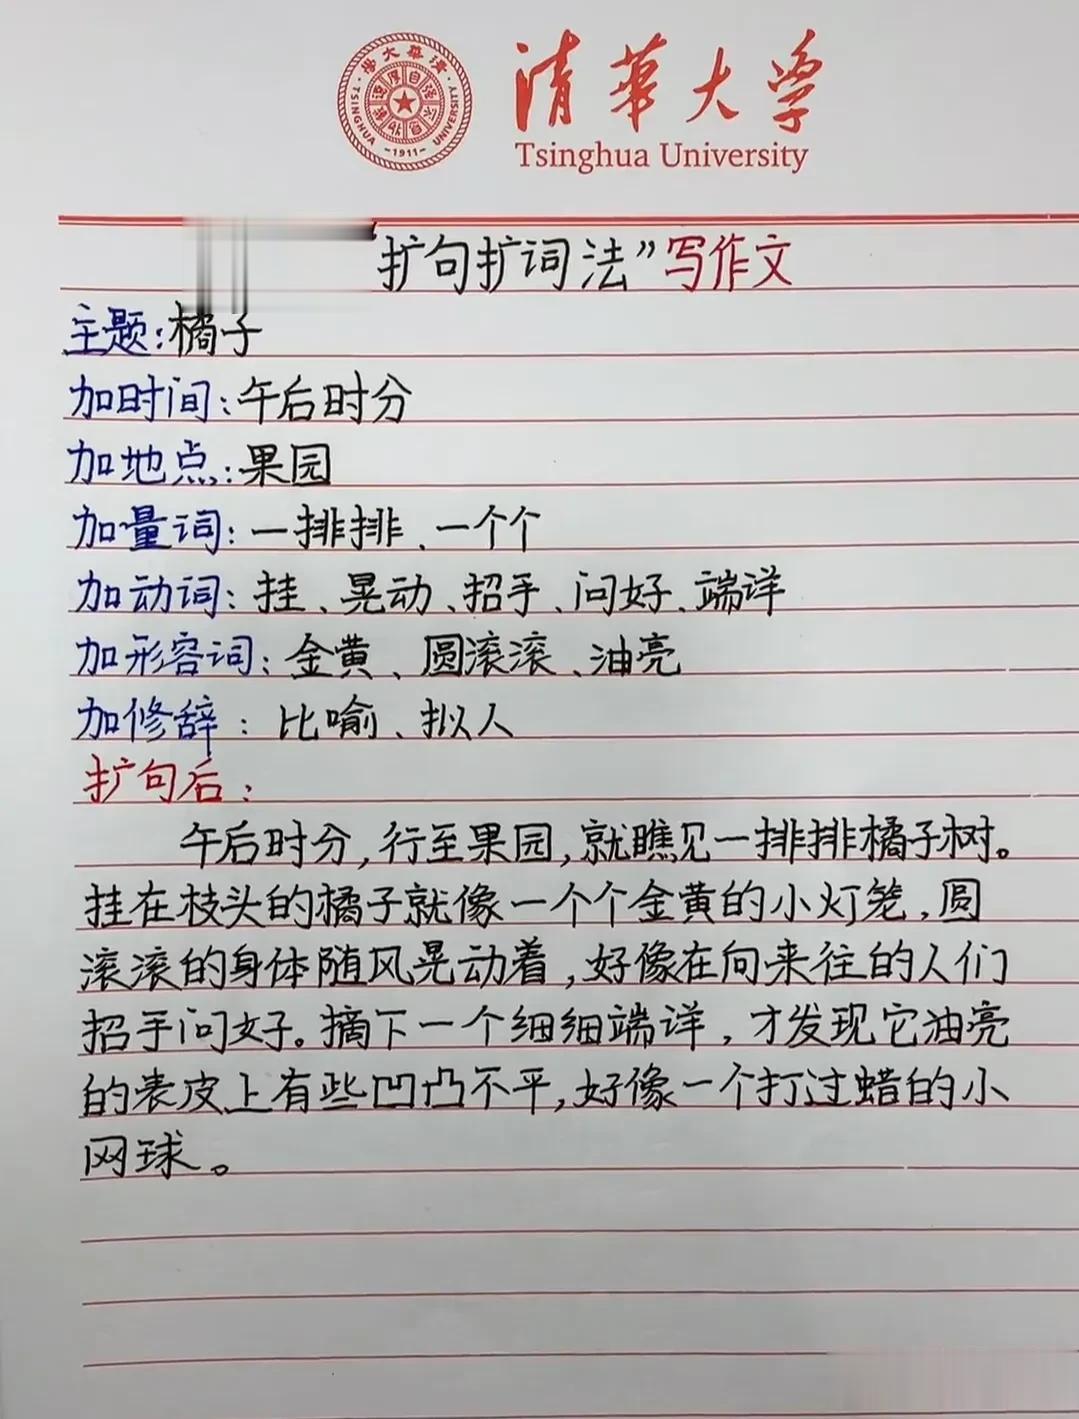 清华大学
Tsinghua University
TSINGHUA UNIVERSITY
-1911-
扩句扩词法”写作文
主题:橘子
加时间:午后时分
加地点:果园
加量词:一排排、一个个
加动词:挂、晃动、招手、问好、端详
加形容词:金黄、圆滚滚、油亮
加修辞:比喻、拟人
扩句后:
午后时分,行至果园,就瞧见一排排橘子树。
挂在枝头的橘子就像一个个金黄的小灯笼,圆
滚滚的身体随风晃动着,好像在向来往的人们
招手问好。摘下一个细细端详,才发现它油亮
的表皮上有些凹凸不平,好像一个打过蜡的小
网球。